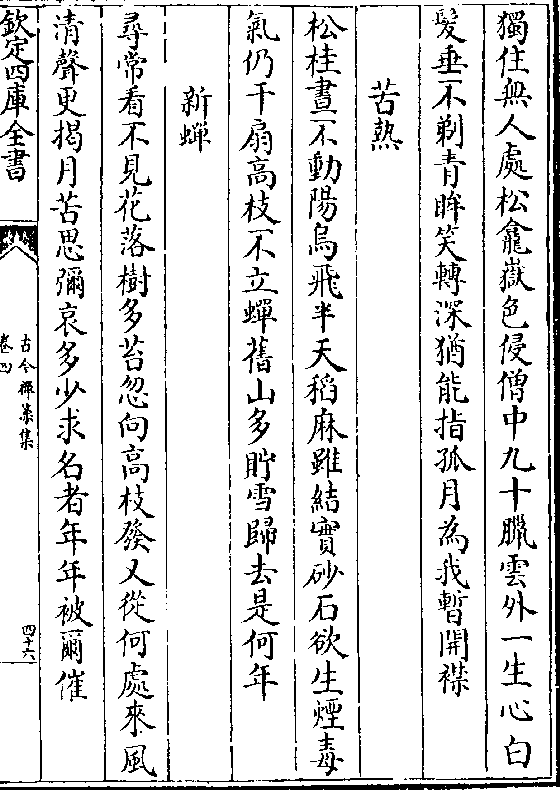 獨住無人處松龕嶽色侵僧中九十臘雲外一生心白
髮垂不剃青眸笑轉深猶能指孤月為我暫開襟
苦熱
松桂晝不動陽烏飛半天稻麻雖結實砂石欲生煙毒
氣仍干扇高枝不立蟬舊山多貯雪歸去是何年
新蟬
尋常看不見花落樹多苔忽向高枝發又從何處來風
清聲更揭月苦思彌哀多少求名者年年被爾催
欽定四庫全書
古今禪藻集
卷四
四十六